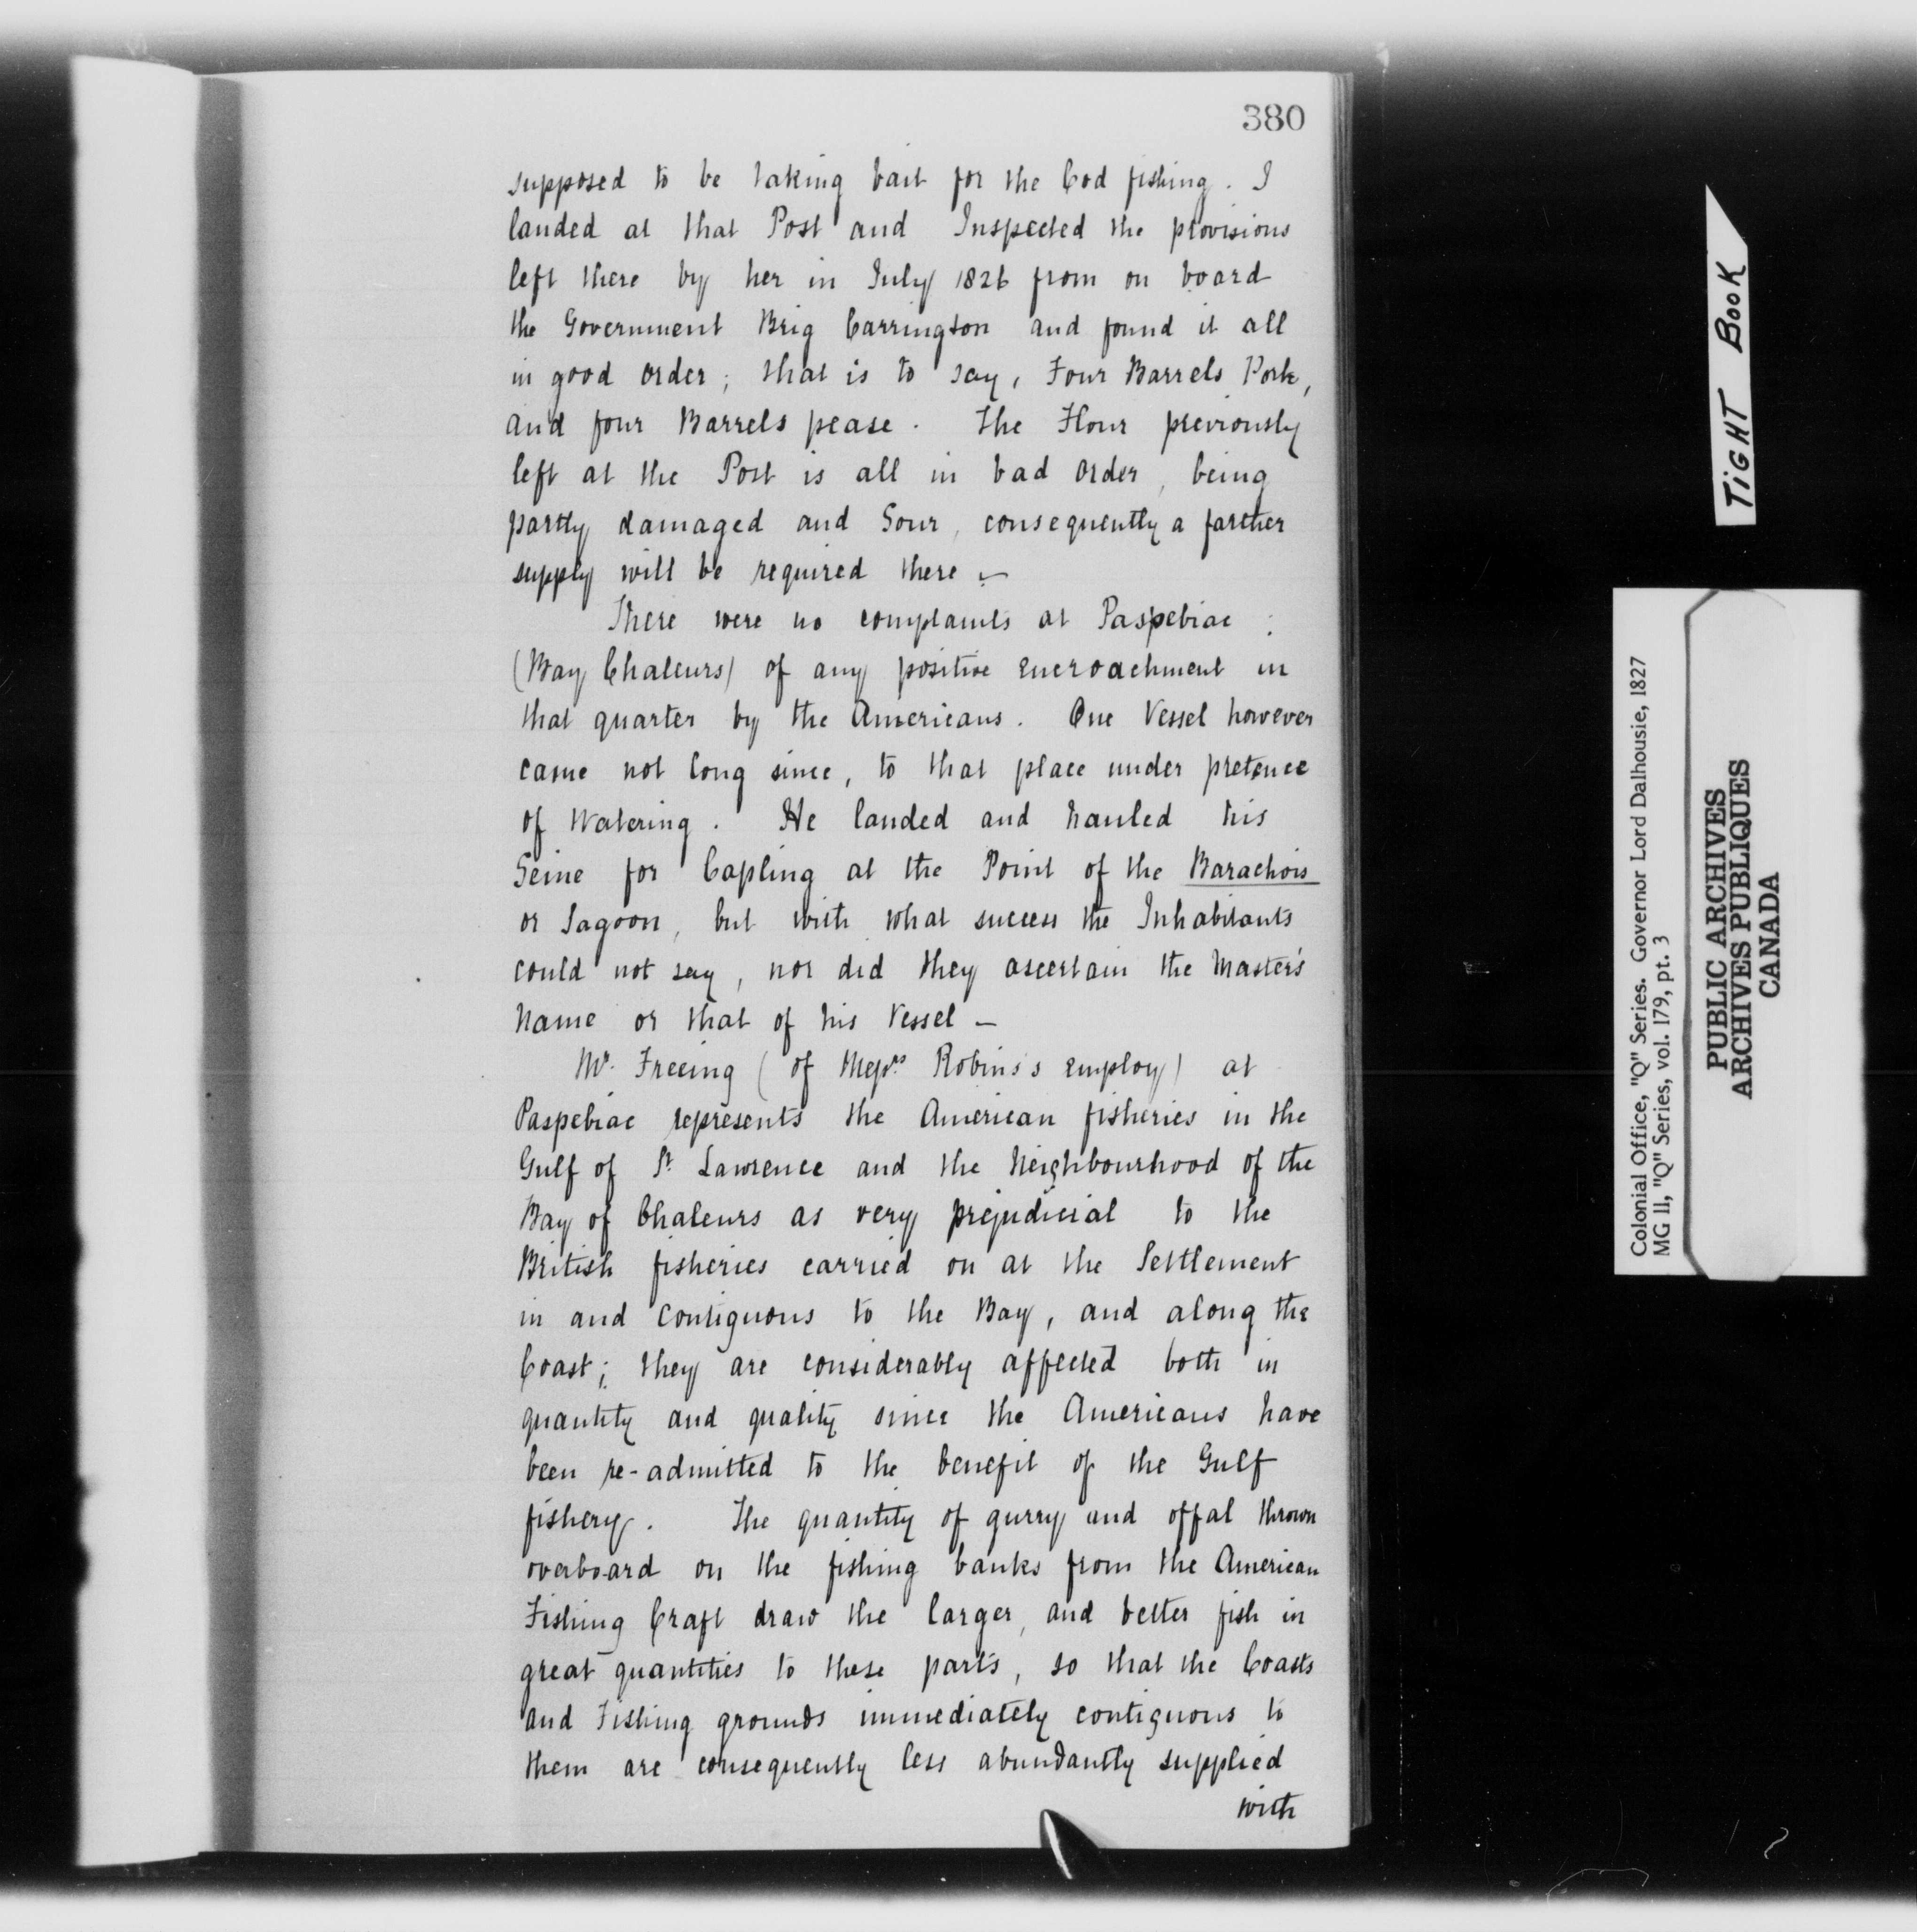 380
supposed to be taking bait for the Cod fishing. I
landed at that Post and Inspected the provisions
left there by her in July 1826 from on board
the Government Brig Carrington and found it all
in good order; that is to say, Four Barrels Pork,
and four Barrels pease. The Flour previously
left at the Post is all in bad order, being
partly damaged and Sour, consequently a farther
supply will be required there.—
There were no complaints at Paspebiac :
(Bay Chaleurs) of any positive encroachment in
that quarter by the Americans. One Vessel however
came not long since, to that place under pretence
of Watering. He landed and hauled his
Seine for Capling at the Point of the Barachois
or Lagoon, but with what success the Inhabitants
could not say, nor did they ascertain the Master's
Name or that of his Vessel —
Mr. Freeing (of Messrs. Robins's employ) at
Paspebiac represents the American fisheries in the
Gulf of St Lawrence and the Neighbourhood of the
Bay of Chaleurs as very prejudicial to the
British fisheries carried on at the Settlement
in and contiguous to the Bay, and along the
Coast; they are considerably affected both in
quantity and quality since the Americans have
been re-admitted to the benefit of the Gulf
fishery. The quantity of gurry and offal thrown
overboard on the fishing banks from the American
Fishing Craft draw the larger, and better fish in
great quantities to these parts, so that the Coasts
and Fishing grounds immediately contiguous to
them are consequently less abundantly supplied
with
TIGHT BOOK
Colonial Office, "Q" Series. Governor Lord Dalhousie, 1827
MG 11, "Q" Series, vol. 179, pt. 3
PUBLIC ARCHIVES
ARCHIVES PUBLIQUES
CANADA